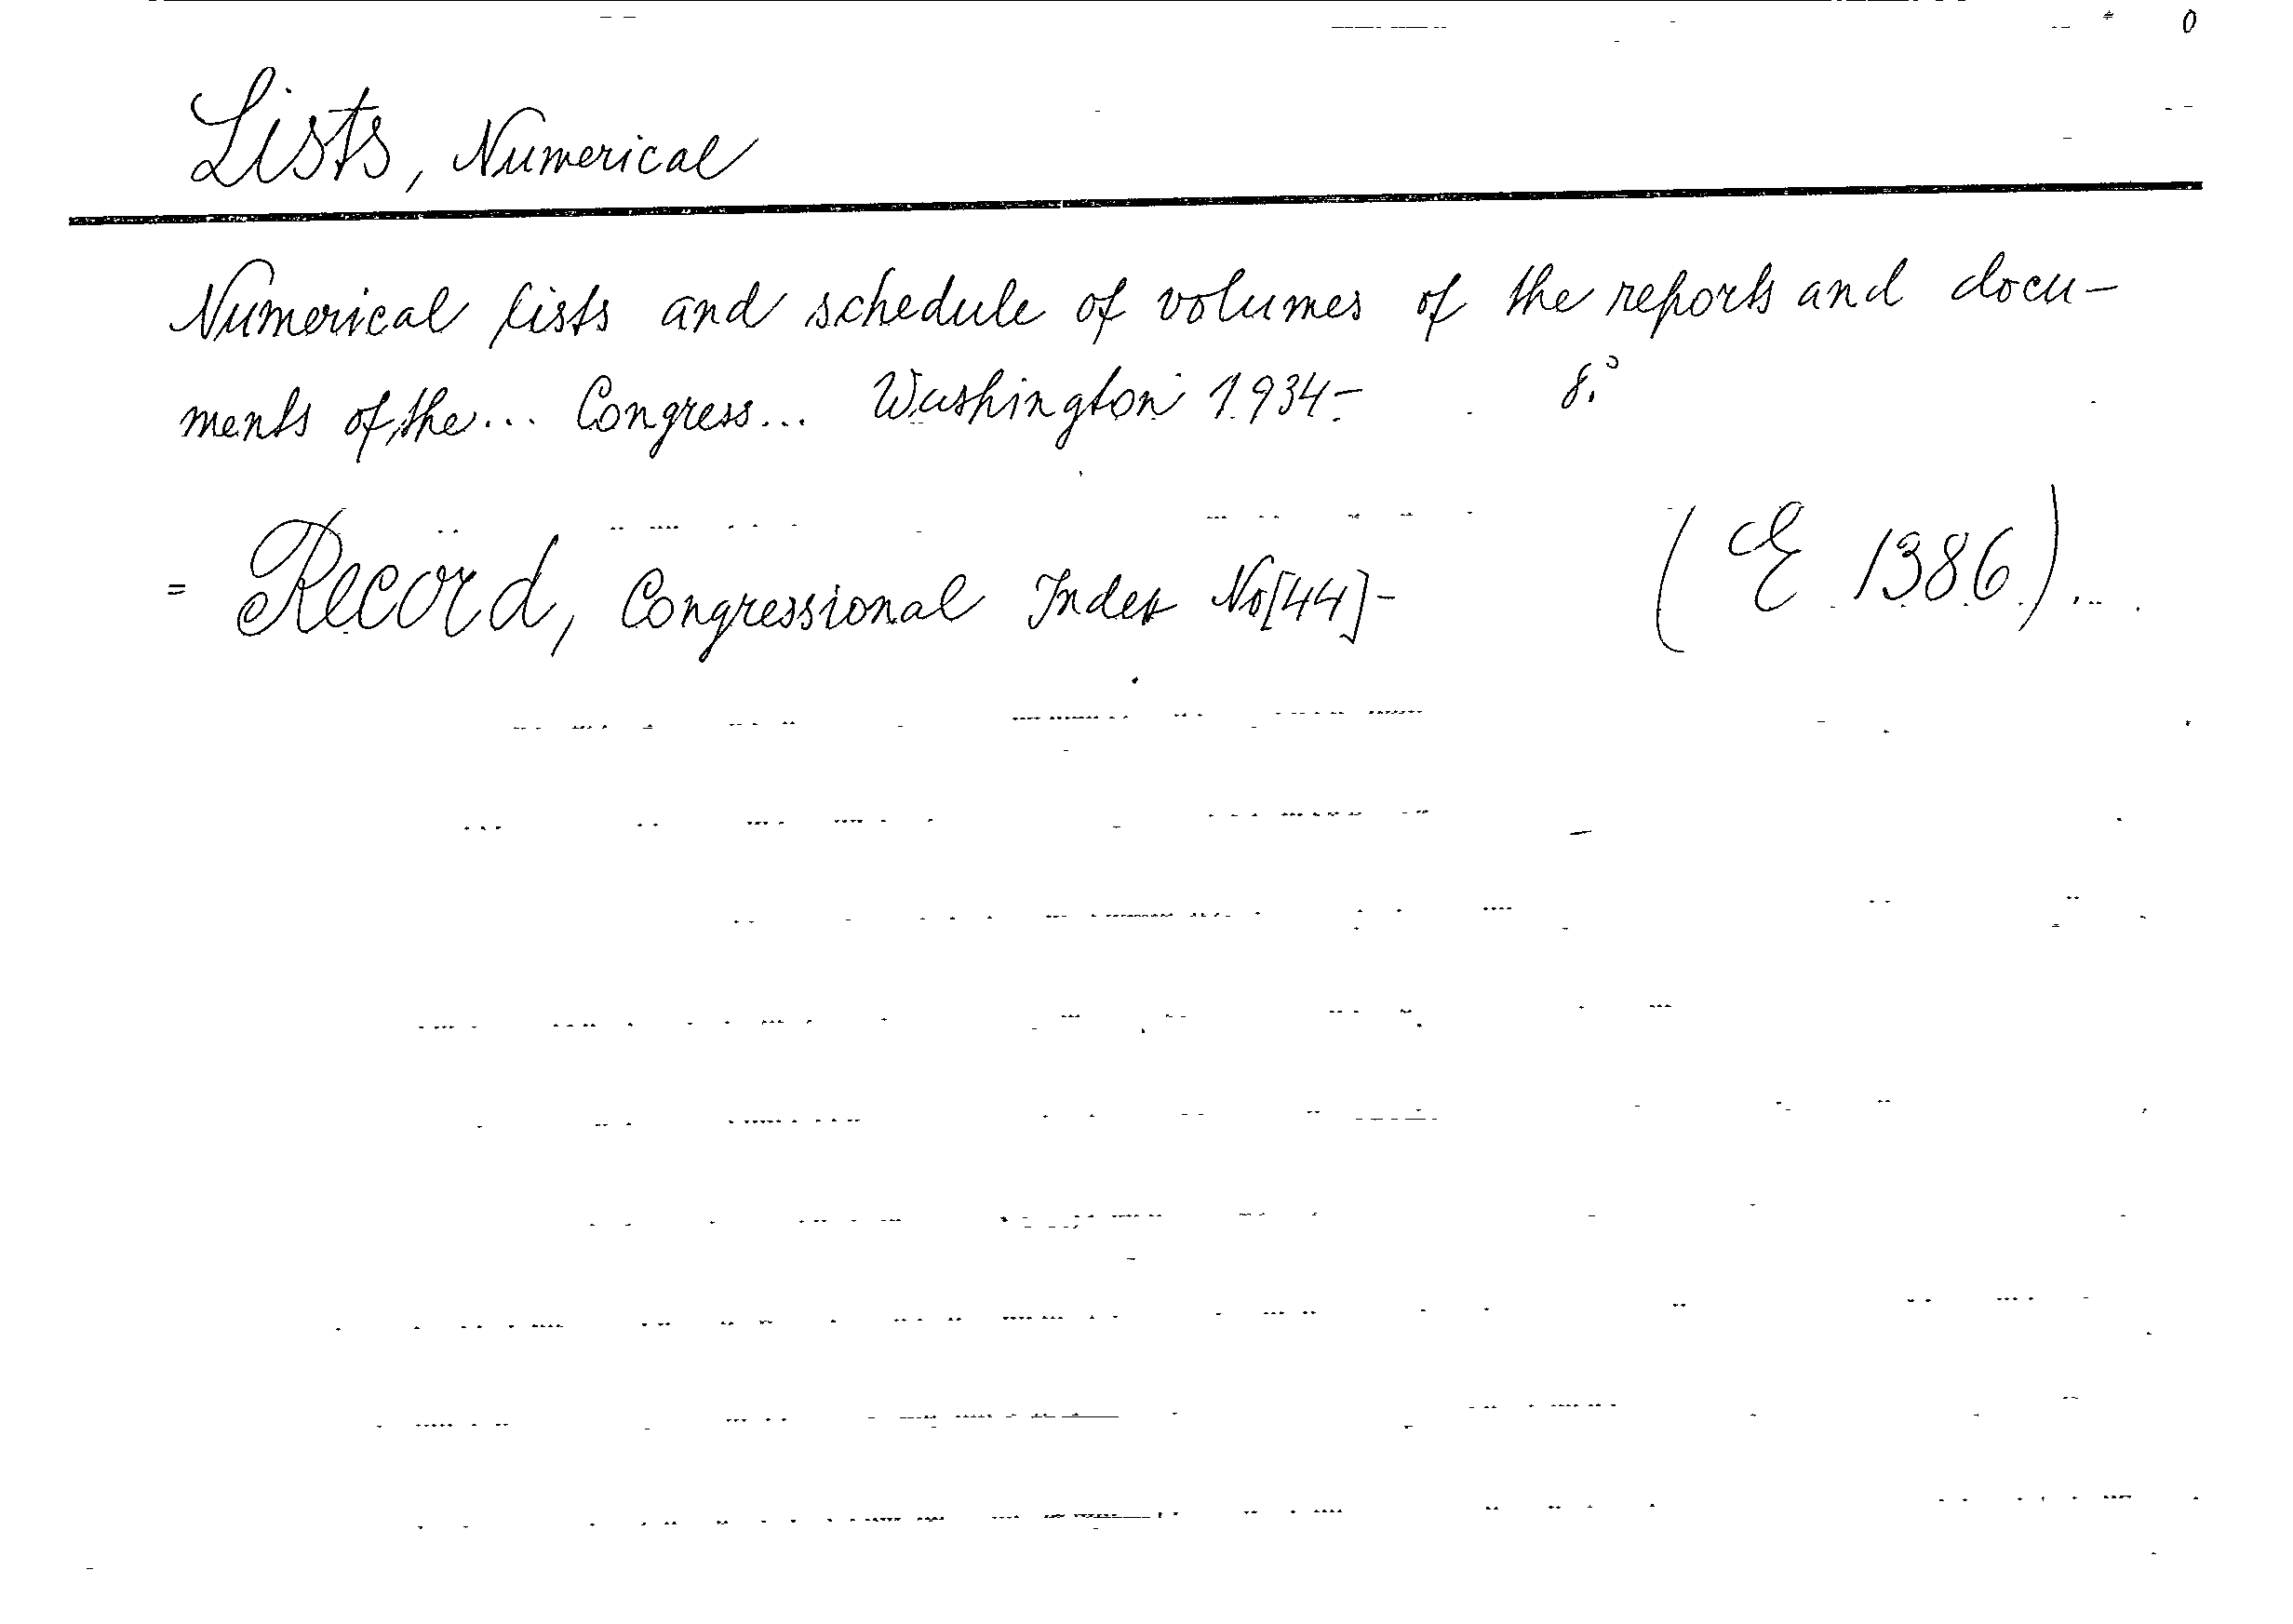 Lists, Numerical
Numerical lists and schedule of volumes of the reports and docu-
ments of the... Congress... Washington 1934- 8.°
= Record, Congressional Index No[44]- (E 1386)...